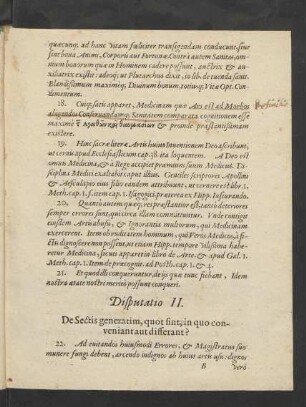 quæcunq; ad hanc vitam fæliciter transigendam conducunt: siue
sint bona Animi, Corporis aut Fortunæ. Contrà autem Sanitas, omnium
bonorum quæ in Hominem cadere possunt, auctrix &
auxiliatrix existit: adeoq; ut Plutarchus dixit, in lib. de tuenda sanit.
Blandissimum maximéq; Divinum bonum totiusq; Vitæ Opt. Condimentum.
18. Cuiq; satis apparet, Medicinam quæ Ars est ad Morbos
abigendos Conservandamq; Sanitatem comparata cognitionem esse
maximè & proinde præstantissimam
existere.
19. Hinc sacræ literæ Artis huius Inventionem Deo ascribunt,
ut certò apud Ecclesiasticum cap. 38. ita loquentem. A Deo est
omnis Medicina, & à Rege accipiet præmium: sanus Medicus. Disciplina
Medici exaltabit caput illius. Gentiles scriptores Apollini
& Æsculapio eius filio eandem attribuunt, ut cernere est libr. 1.
Meth. cap. 1. s. item cap. 1. Isagogis, præterea ex Hipp. Iusiurando.
20. Quantò autem quæq; res præstantior est, tantò deteriores
semper errores sunt, qui circa illam committuntur. Vnde contigit
eiusdem Artis abusus, & Ignorantia multorum, qui Medicinam
exercerent. Item ob ruditatem hominum, qui Veros Medicos, à fictis
dignoscere non possent, ut etiam Hipp. tempore vilissima haberetur
Medicina, sicuti apparet in libro de Arte. & apud Gal. 1.
Meth. cap. 1. Item de præcognit. ad Posth. cap. 1. & 4.
21. Et quod illi conqueruntur, de ijs quæ tunc fiebant, Idem
nostra ætate nostri meritò possunt conqueri.
Disputatio II.
De Sectis generatim, quot sint, in quo conveniant
aut differant?
22. Ad evitandos huiusmodi Errores, & Magistratus suo
munere fungi debent, arcendo indignos ab huius artis usu: dignos
B verò